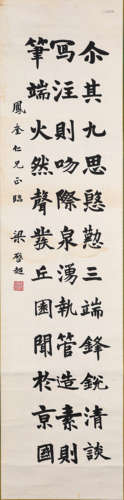 尒其九思慇懃三端鋒銳清談
寫注則吻際泉湧執管造素則
筆端火然聲發丘園聞於京國
仁兄正臨 梁啓超